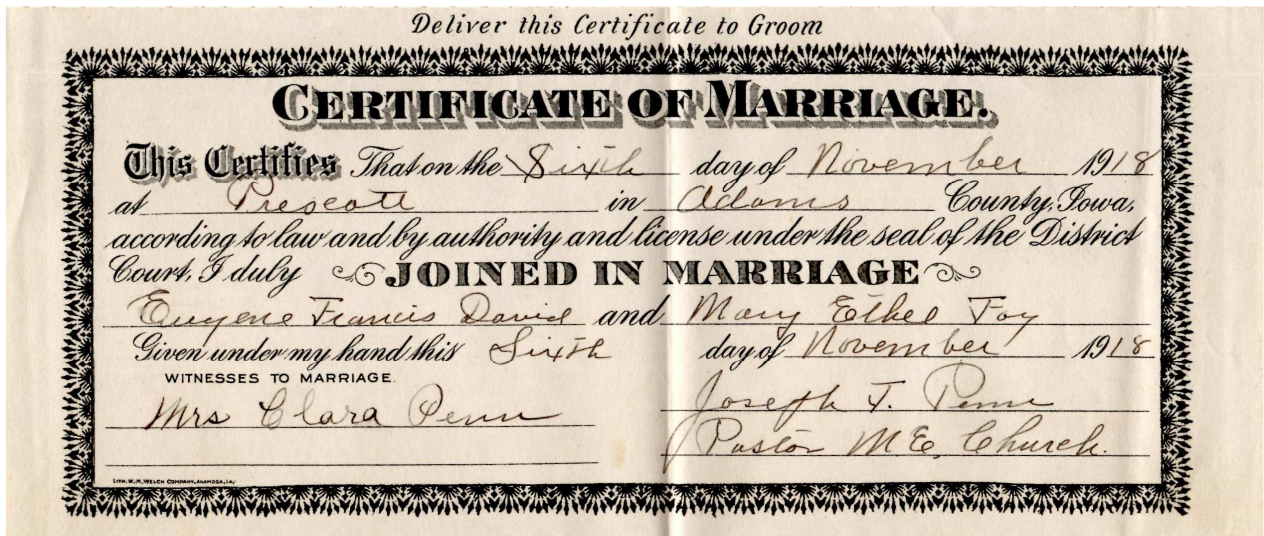 Deliver this Certificate to Groom
CERTIFICATE OF MARRIAGE.
This Certifies That on the Sixth day of November 1918
at Prescott in Adams County, Iowa,
according to law and by authority and license under the seal of the District
Court, I duly JOINED IN MARRIAGE
Eugene Francis David and Mary Ethel Foy
Given under my hand this Sixth day of November 1918
WITNESSES TO MARRIAGE.
Mrs Clara Penn
Joseph T. Penn
Pastor M.E. Church.
LITH. W. M. WELCH COMPANY, ANAMOSA, IA.